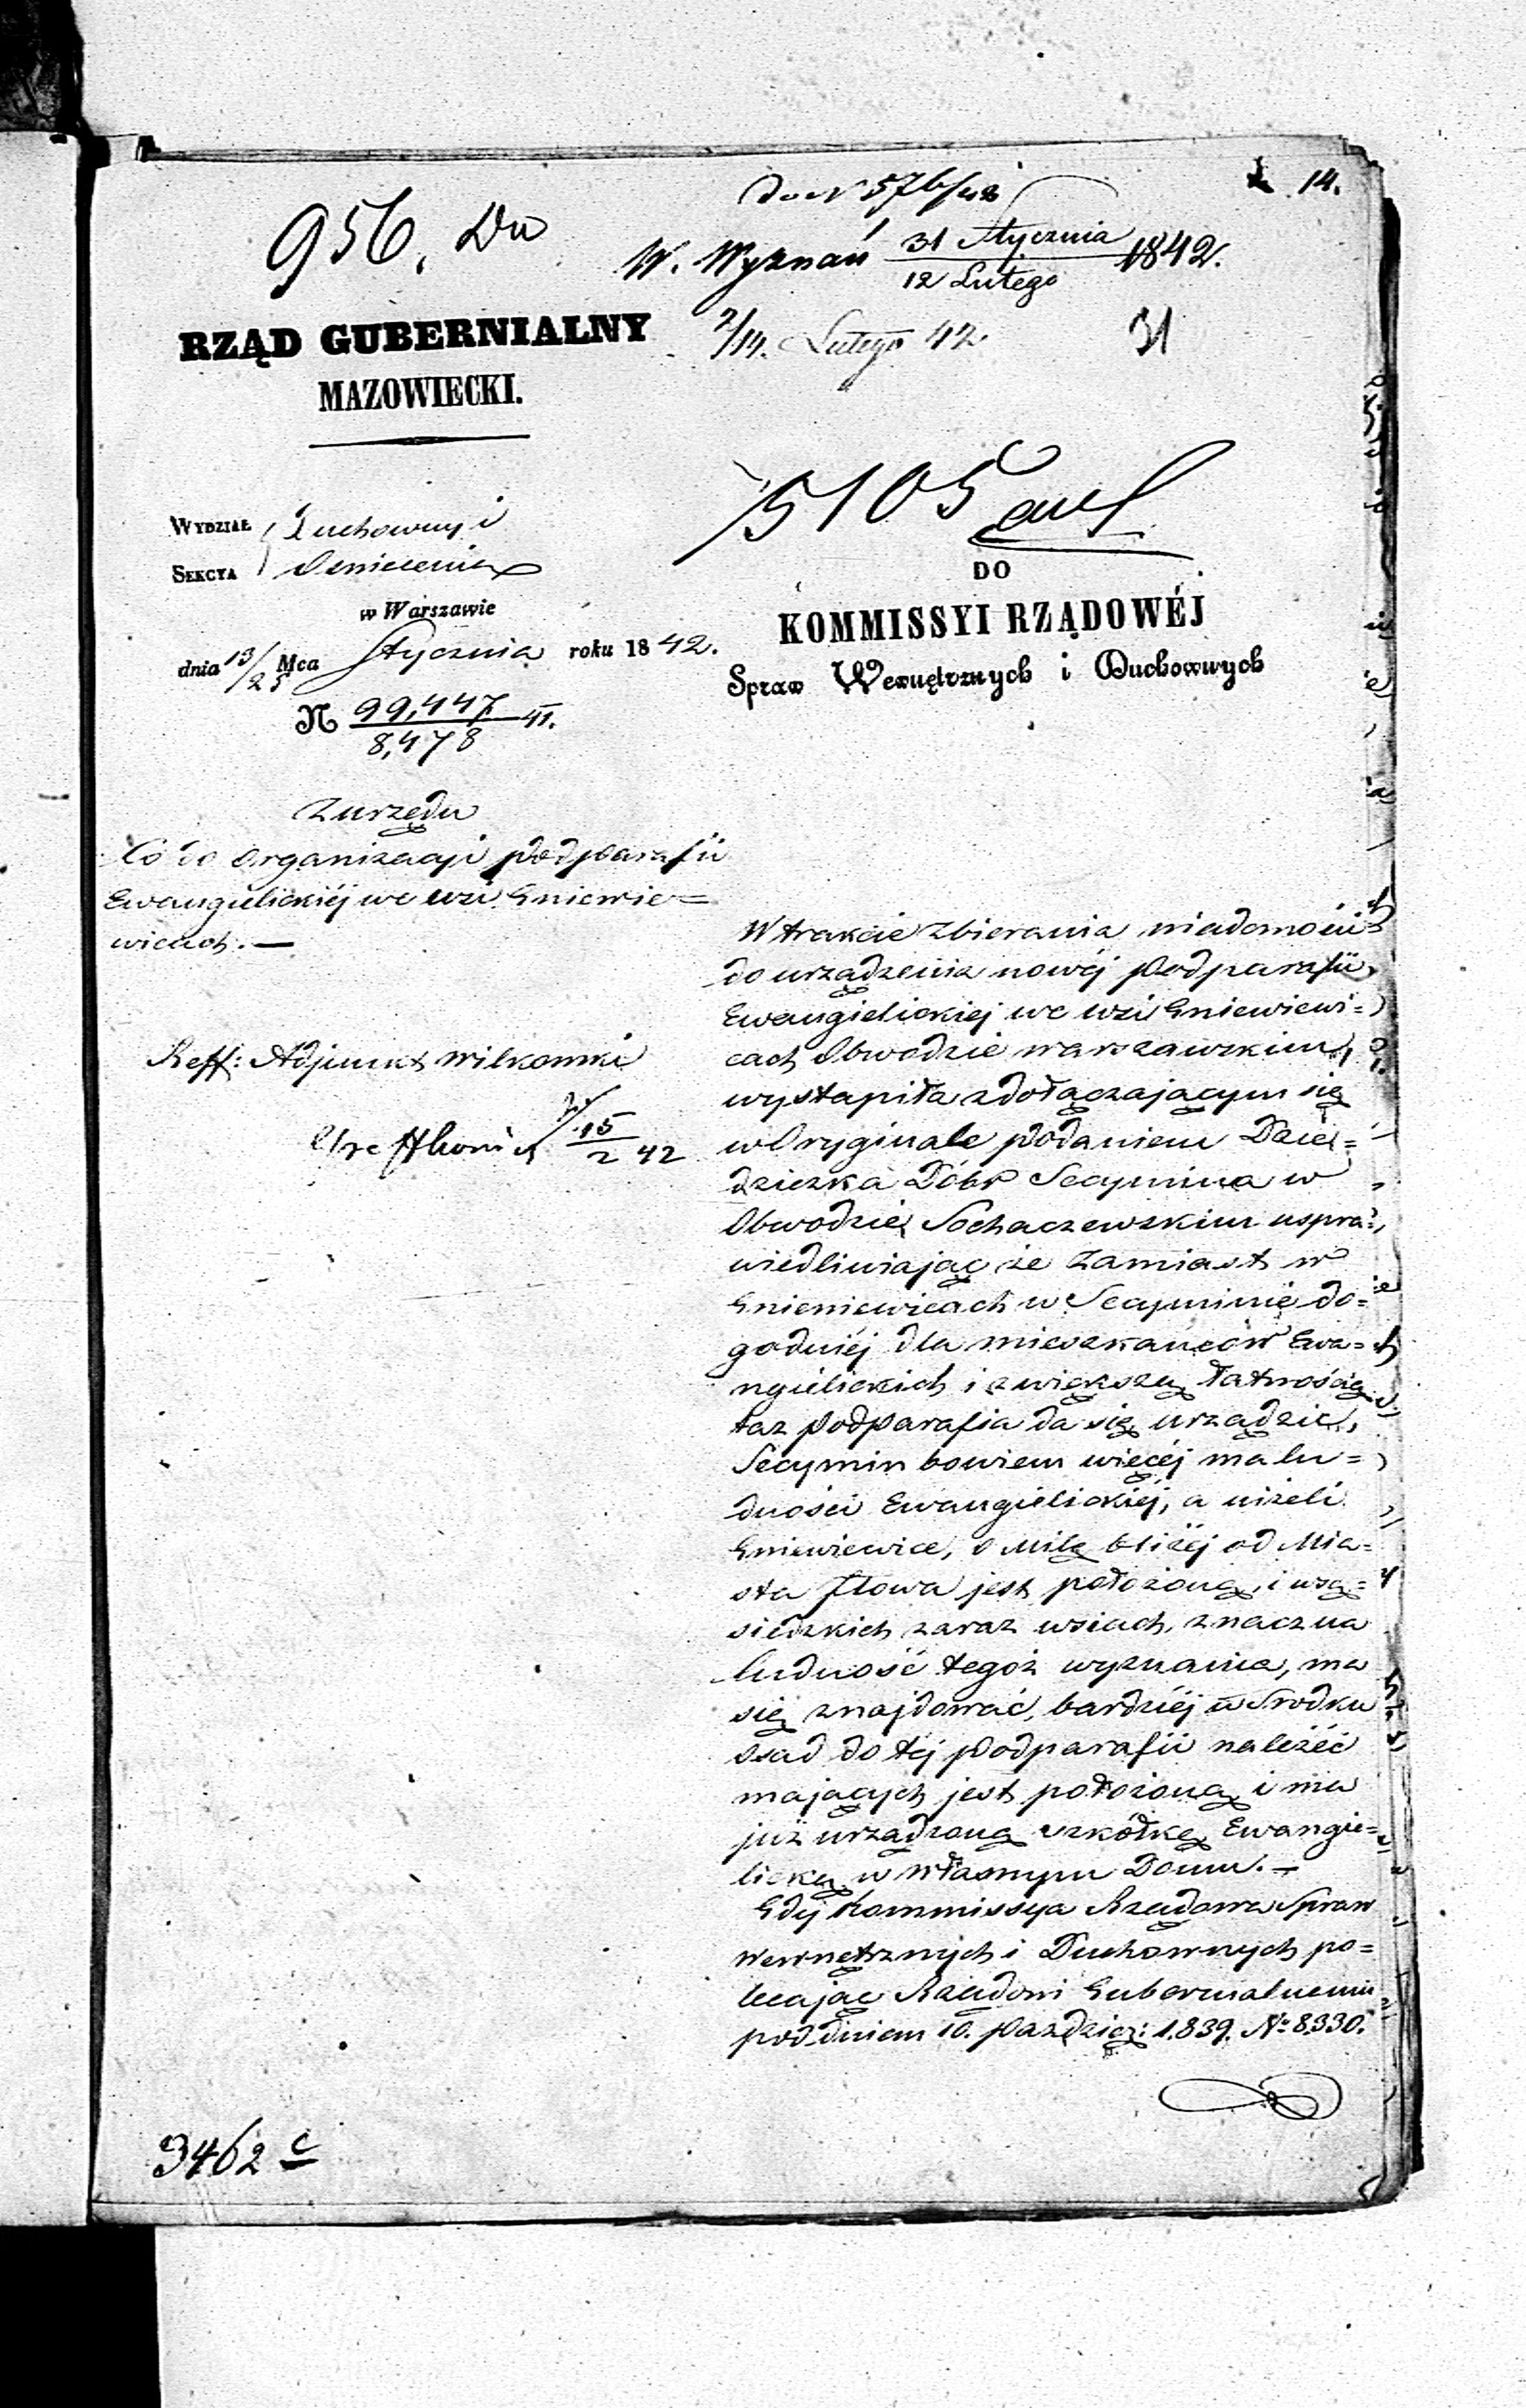 14.
do N 576/42
956. Du
W. Wyznań 31 Stycznia / 12 Lutego 1842.
RZĄD GUBERNIALNY
MAZOWIECKI.
2/14. Lutego 42.
31
5105
WYDZIAŁ Duchowny i
SEKCYA Oświecenia
w Warszawie
dnia 13/25 Mca Stycznia roku 1842.
N 99,447/8,478 41.
DO
KOMMISSYI RZĄDOWÉJ
Spraw Wewnętrznych i Duchownych
Z urzędu
Co do Organizacyi podparafii
Ewangelickiéj we wsi Gniewie=
wicach. —
Reff: Adjunkt Wilkoński
15/2 42
W trakcie zbierania wiadomości
do urządzenia nowéj Podparafii
Ewangielickiej we wsi Gniewiewi=
cach Obwodzie warszawskim,
wystąpiła z dołączającym się
w Oryginale podaniem Dzie=
dziczka Dóbr Secymina w
Obwodzie Sochaczewskim uspra=
wiedliwiając że zamiast w
Gniewiewicach w Secyminie do=
godniéj dla mieszkańców Ewa=
ngielickich i z większą łatwością
taż podparafia da się urządzić,
Secymin bowiem więcéj ma lu=
dności Ewangielickiéj, a niżeli
Gniewiewice, o milę bliżéj od Mia=
sta Iłowa jest położoną, i w są=
siedzkich zaraz wsiach, znaczna
ludność tegoż wyznania, ma
się znajdować, bardziéj w środku
osad do téj podparafii należéć
mających jest położoną i ma
już urządzoną szkółkę Ewangie=
licką w własnym Domu. —
Gdy Kommissya Rządowa Spraw
Wewnętrznych i Duchownych po=
lecając Rządowi Gubernialnemu
pod dniem 10. Paździer: 1839. No 8330.
3462 c